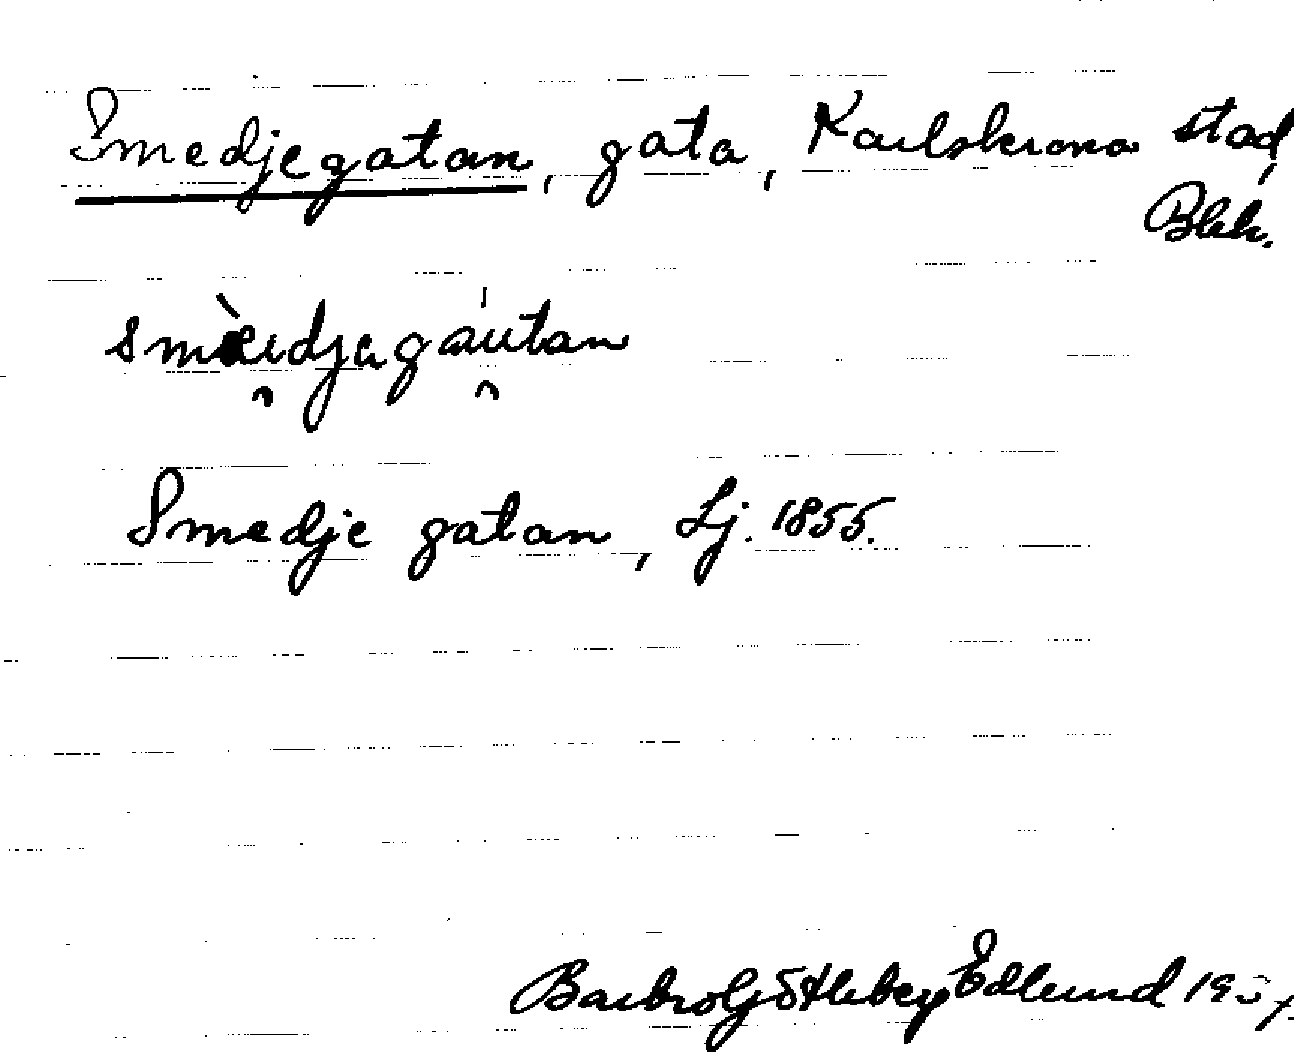 Smedjegatan, gata, Karlskrona stad,
Blek.
smæ̀udjagáutan
Smedje gatan, Lj. 1855.
Barbro Götleby Edlund